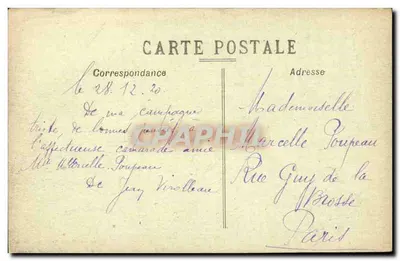 CARTE POSTALE
Correspondance
Adresse
le 28.12.20
De ma campagne
triste, de bonnes
l'affectueuse camarade amie
Mlle Marcelle Poupeau
De Jeny Virolleau
Mademoiselle
Marcelle Poupeau
Rue Guy de la
Brosse
Paris